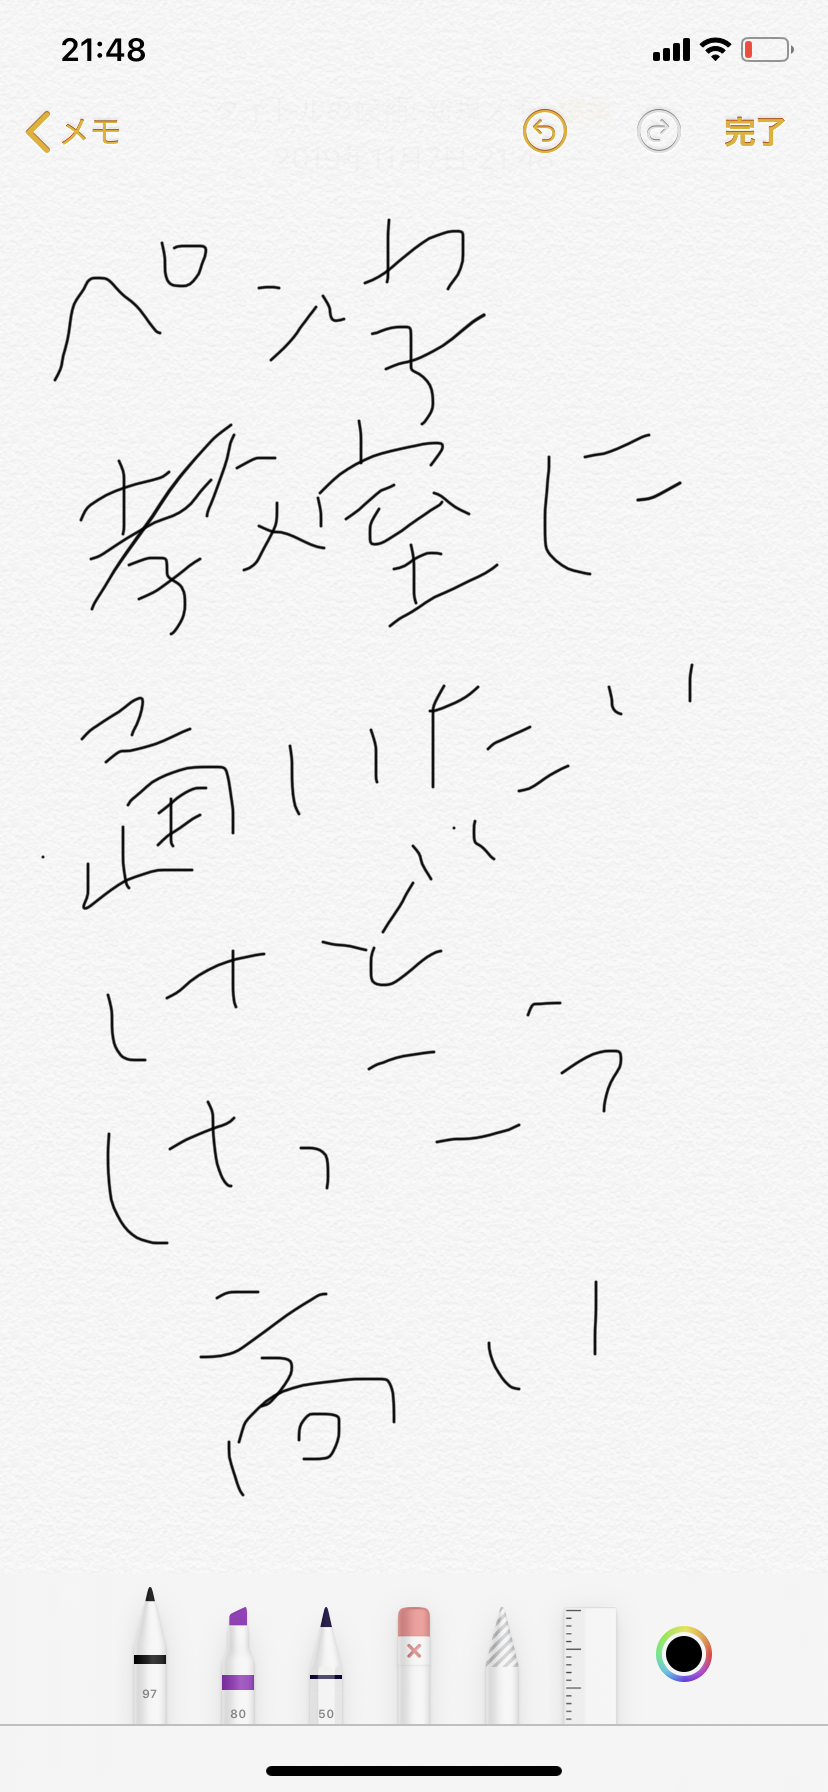 21:48
メモ 完了
ペン字
教室に
通いたい
けど
けっこう
高い
97 80 50